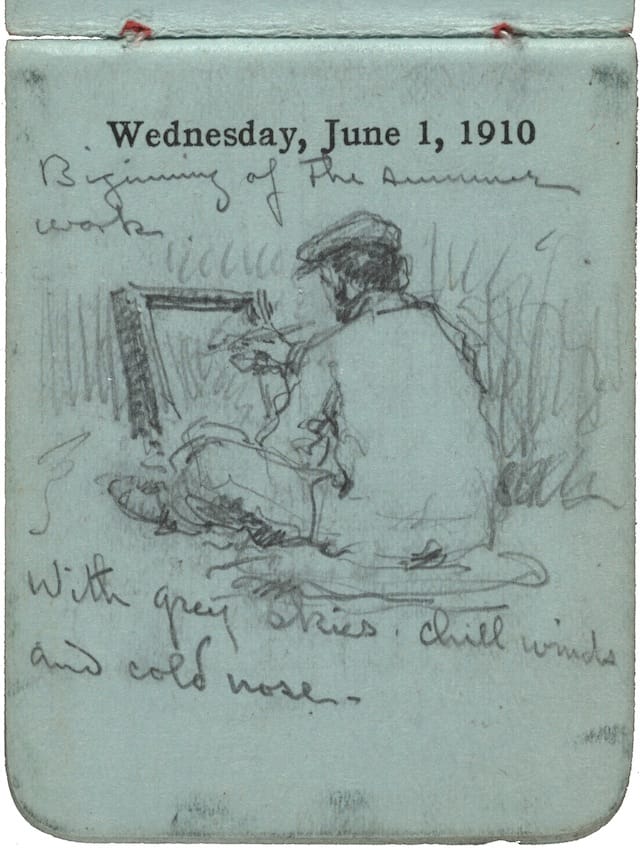 Wednesday, June 1, 1910
Biginning of the summer
work
With grey skies. chill winds
and cold nose-